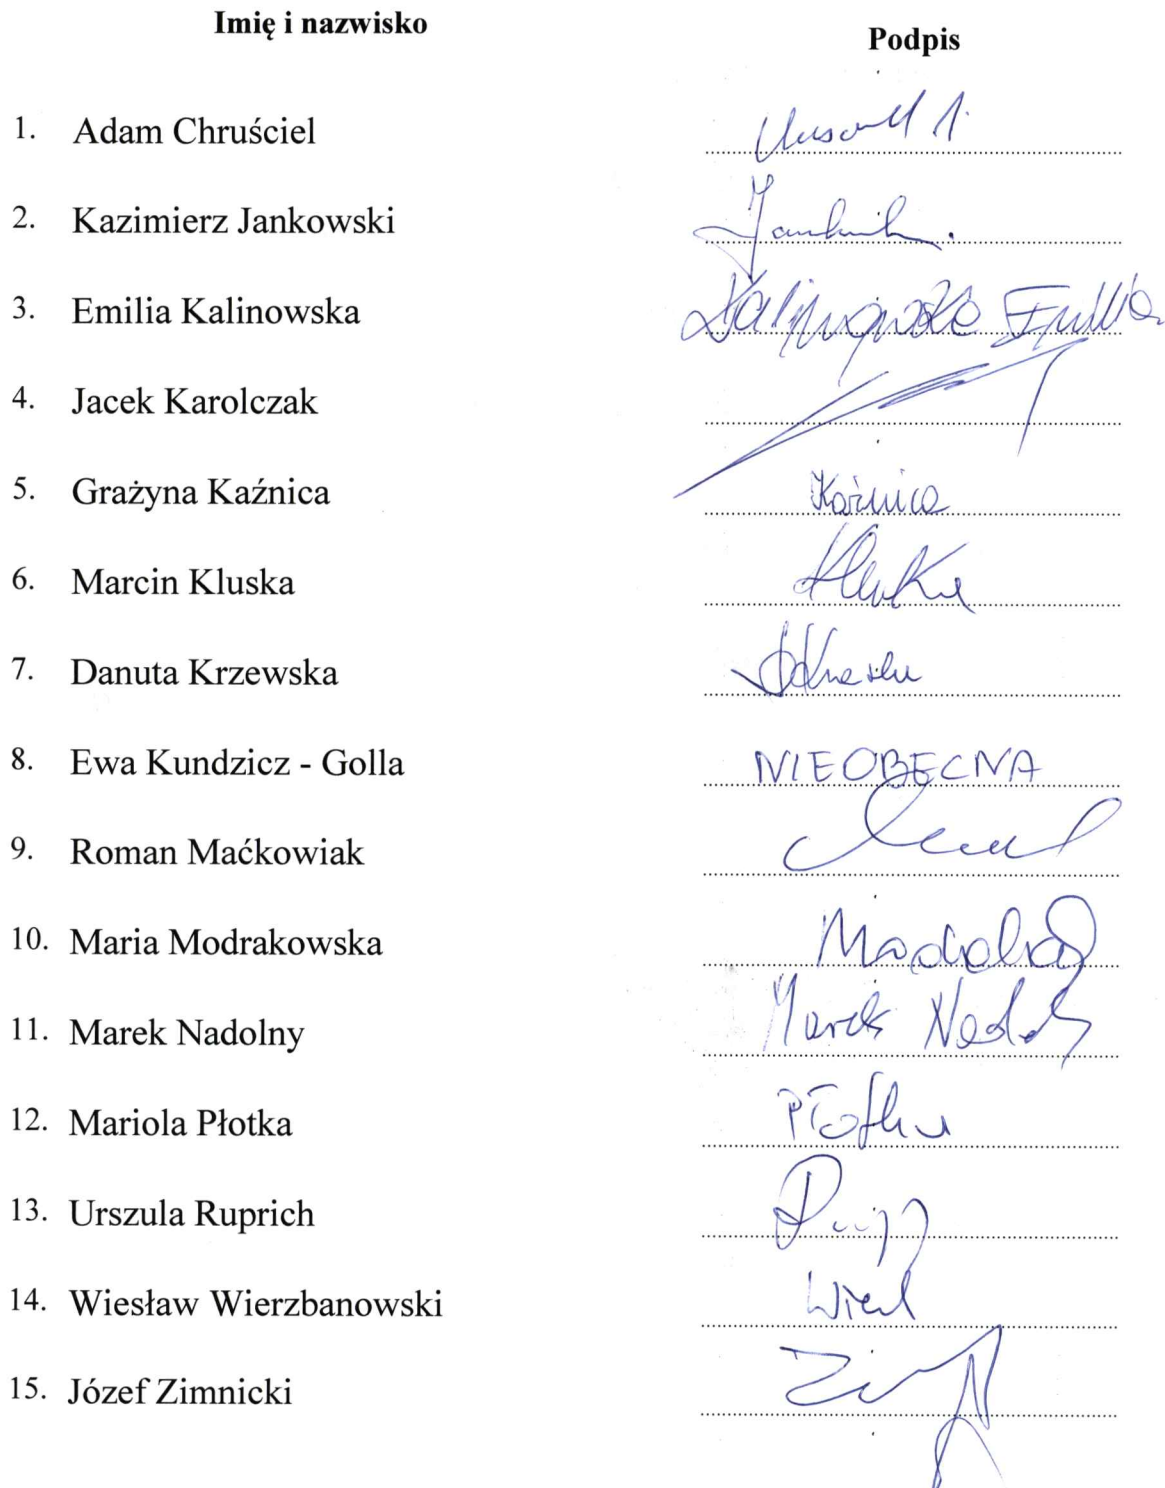 Imię i nazwisko Podpis
1. Adam Chruściel
2. Kazimierz Jankowski
3. Emilia Kalinowska Kalinowska Emilia
4. Jacek Karolczak
5. Grażyna Kaźnica Kaźnica
6. Marcin Kluska
7. Danuta Krzewska
8. Ewa Kundzicz - Golla NIEOBECNA
9. Roman Maćkowiak
10. Maria Modrakowska
11. Marek Nadolny Marek Nadolny
12. Mariola Płotka Płotka
13. Urszula Ruprich
14. Wiesław Wierzbanowski
15. Józef Zimnicki